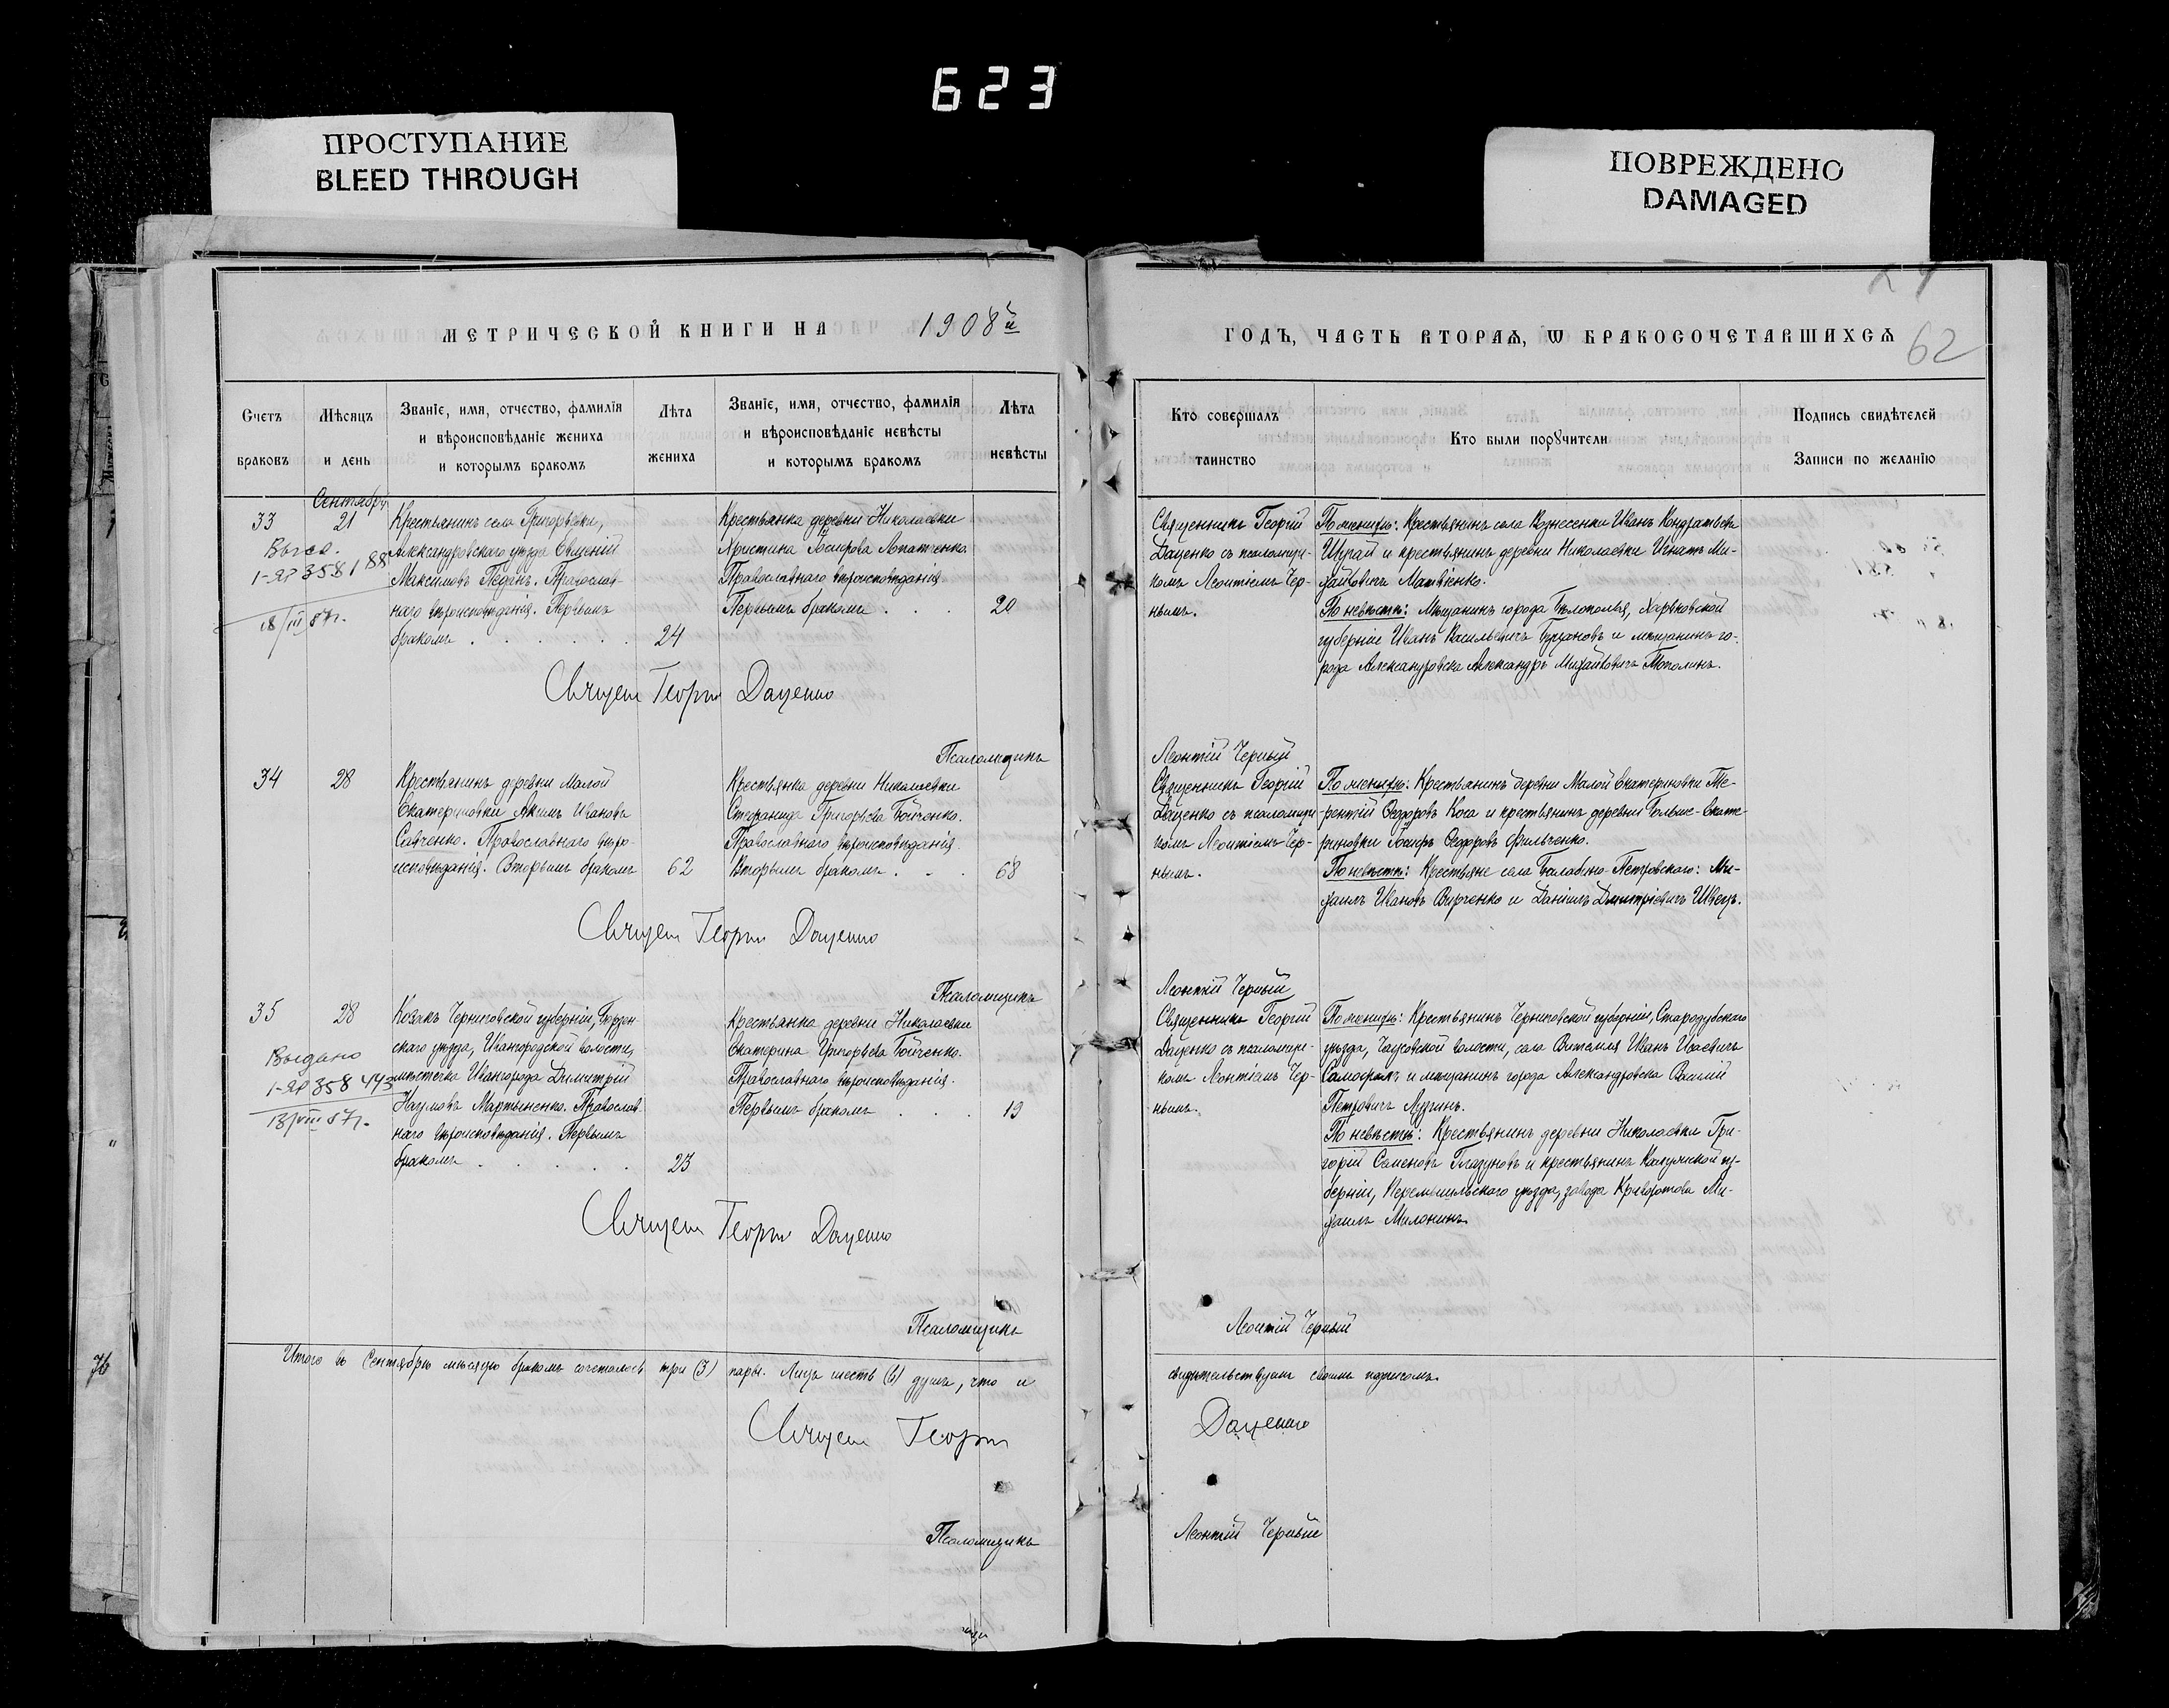 623
ПРОСТУПАНИЕ
BLEED THROUGH
ПОВРЕЖДЕНО
DAMAGED
МЕТРИЧЕСКОЙ КНИГИ НА 1908й
Счетъ браковъ
Мѣсяцъ и день
Званіе, имя, отчество, фамилія
и вѣроисповѣданіе жениха
и которымъ бракомъ
Лѣта жениха
Званіе, имя, отчество, фамилія
и вѣроисповѣданіе невѣсты
и которымъ бракомъ
Лѣта невѣсты
Сентябрь
33
21
1-ЯР 358188
18/III 57г.
Крестьянинъ села Григорьевки,
Александровскаго уѣзда Евгеній
Максимовъ Педанъ. Православ-
наго вѣроисповѣданія. Первымъ
бракомъ . . . . . .
24
Крестьянка деревни Николаевки
Христина Іосифова Лопатченко.
Православнаго вѣроисповѣданія.
Первымъ бракомъ . . .
20
Священ Георгій Даценко
Псаломщикъ
34
28
Крестьянинъ деревни Малой
Екатериновки Акимъ Ивановъ
Савченко. Православнаго вѣро-
исповѣданія. Вторымъ бракомъ
62
Крестьянка деревни Николаевки
Стефанида Григорьева Бойченко.
Православнаго вѣроисповѣданія.
Вторымъ бракомъ . . .
68
Священ Георгій Даценко
Псаломщикъ
35
28
Выдано
1-ЯР 358443
13/VIII 57г.
Козакъ Черниговской губерніи, Борзен-
скаго уѣзда, Ивангородской волости,
мѣстечка Ивангорода Димитрій
Наумовъ Мартыненко. Православ-
наго вѣроисповѣданія. Первымъ
бракомъ . . . . . .
23
Крестьянка деревни Николаевки
Екатерина Григорьева Бойченко.
Православнаго вѣроисповѣданія.
Первымъ бракомъ . . .
19
Священ Георгій Даценко
Псаломщикъ
Итого въ Сентябрѣ мѣсяцѣ бракомъ сочеталось три (3) пары. Лицъ шесть (6) душъ, что и
Священ Георгій
Псаломщикъ
62
ГОДЪ, ЧАСТЬ ВТОРАЯ, Ѡ БРАКОСОЧЕТАВШИХСЯ
Кто совершалъ таинство
Кто были поручители
Подпись свидѣтелей
Записи по желанію
Священникъ Георгій
Даценко съ псаломщи-
комъ Леонтіемъ Чер-
нымъ.
По женихѣ: Крестьянинъ села Вознесенки Иванъ Кондратьевъ
и крестьянинъ деревни Николаевки Игнатъ Ми-
хайловичъ Матвіенко.
По невѣстѣ: Мѣщанинъ города Бѣлополья, Харьковской
губерніи Иванъ Васильевичъ и мѣщанинъ го-
рода Александровска Александръ Михайловичъ Тополинъ.
Леонтій Черный
Священникъ Георгій
Даценко съ псаломщи-
комъ Леонтіемъ Чер-
нымъ.
По женихѣ: Крестьянинъ деревни Малой Екатериновки Те-
рентій Ѳеодоровъ Коса и крестьянинъ деревни Больше-Екате-
риновки Іосифъ Ѳеодоровъ Фильченко.
По невѣстѣ: Крестьяне села Балабино-Петровскаго: Ми-
хаилъ Ивановъ Вирченко и Даніилъ Дмитріевичъ Швецъ.
Леонтій Черный
Священникъ Георгій
Даценко съ псаломщи-
комъ Леонтіемъ Чер-
нымъ.
По женихѣ: Крестьянинъ Черниговской губерніи, Стародубскаго
уѣзда, волости, села Иванъ Исаевичъ
и мѣщанинъ города Александровска Василій
Петровичъ Лузгинъ.
По невѣстѣ: Крестьянинъ деревни Николаевки Гри-
горій Семеновъ Глазуновъ и крестьянинъ Калужской гу-
берніи, Перемышльскаго уѣзда, завода Ми-
хаилъ Милонинъ.
Леонтій Черный
свидѣтельствуемъ своимъ подписомъ.
Даценко
Леонтій Черный